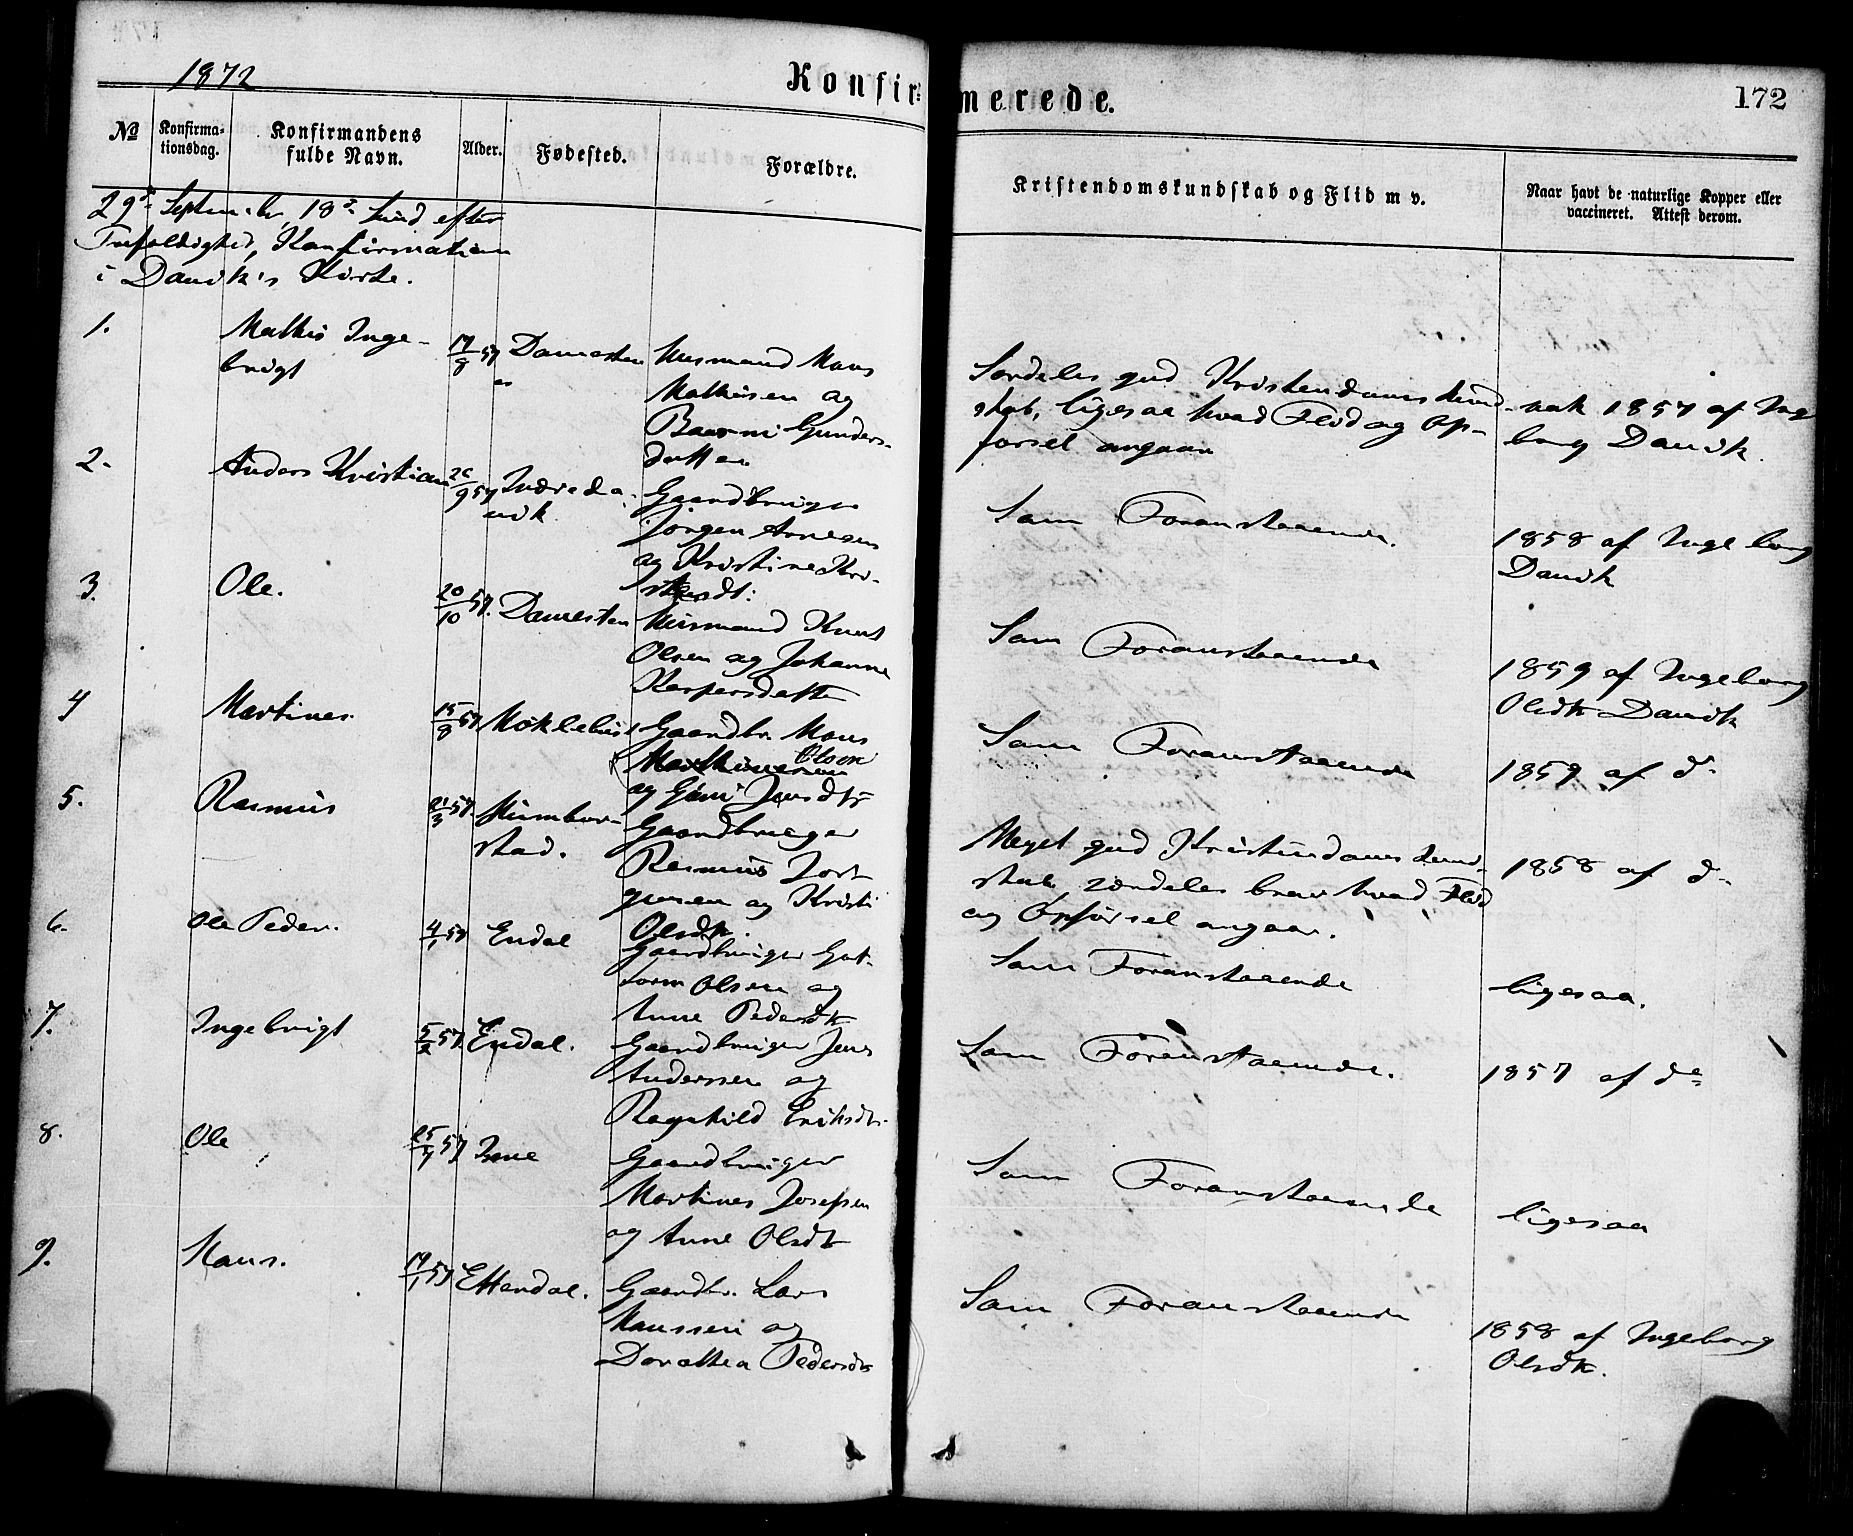 1872
Konfir=
merede.
172
No
Konfirma=
tionsdag.
Konfirmandens
fulde Navn.
Alder.
Fødested.
Forældre.
Kristendomskundskab og Flid m v.
Naar havt de naturlige Kopper eller
vaccineret. Attest derom.
29de September, 18de Sønd efter
Trefoldighed, Konfirmation
i Davik's Kirke.
1.
Mathis Inge-
brigt
17/8 57
Husmand Mons
Mathisen og
Gunders-
datter
Særdeles god Kristendomskund-
skab, ligesaa hvad Flid og Op-
førsel angaar
vak 1857 af Inge
borg Davik
2.
Anders Kristian
26/9 57
Indreda-
vik
Gaardbruger
Jørgen Arnesen
og Kristine Kri-
stensdt:
Som Foranstaaende.
1858 af Ingeborg
Davik
3.
Ole.
20/10 57.
Damesten
Husmand Knut
Olsen og Johanne
Kaspersdatter
Som Foranstaaende
1859 af Ingeborg
Olsdtr Davik
4
Martines.
15/8 57
Møklebust
Gaardbr. Mons
Olsen
og Jensdtr
Som Foranstaaende
1857 af do
5.
Rasmus
21/3 57.
Humbor-
stad.
Gaardbruger
Rasmus Jørg-
gensen og Kristi
Olsdtr.
Meget god Kristendomskund-
skab, særdeles brav hvad Flid
og Opførsel angaar.
1858 af do
6.
Ole Peder.
4/1 57
Endal
Gaardbruger Gut-
torm Olsen og
Anne Pedersdtr
Som Foranstaaende
ligesaa.
7.
Ingebrigt
5/2 57
Endal.
Gaardbruger Jens
Anderssen og
Ragnhild Eriksdtr.
Som Foranstaaende.
1857 af do
8.
Ole
25/4 57
Inne
Gaardbruger
Martines Josefsen
og Anne Olsdtr
Som Foranstaaende
ligesaa
9.
Hans.
19/1 57
Ettendal.
Gaardbr. Lars
Hanssen og
Dorothea Pedersdtr
Som Foranstaaende
1858 af Ingeborg
Olsdtr.